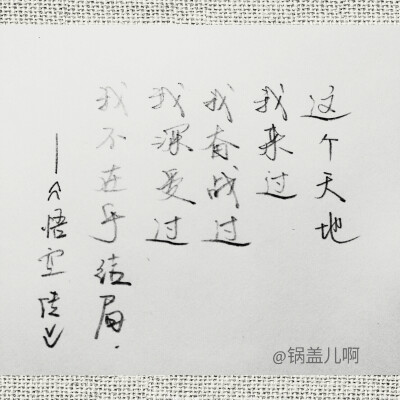 这个天地
我来过
我奋战过
我深爱过
我不在乎结局.
——《悟空传》
@锅盖儿啊